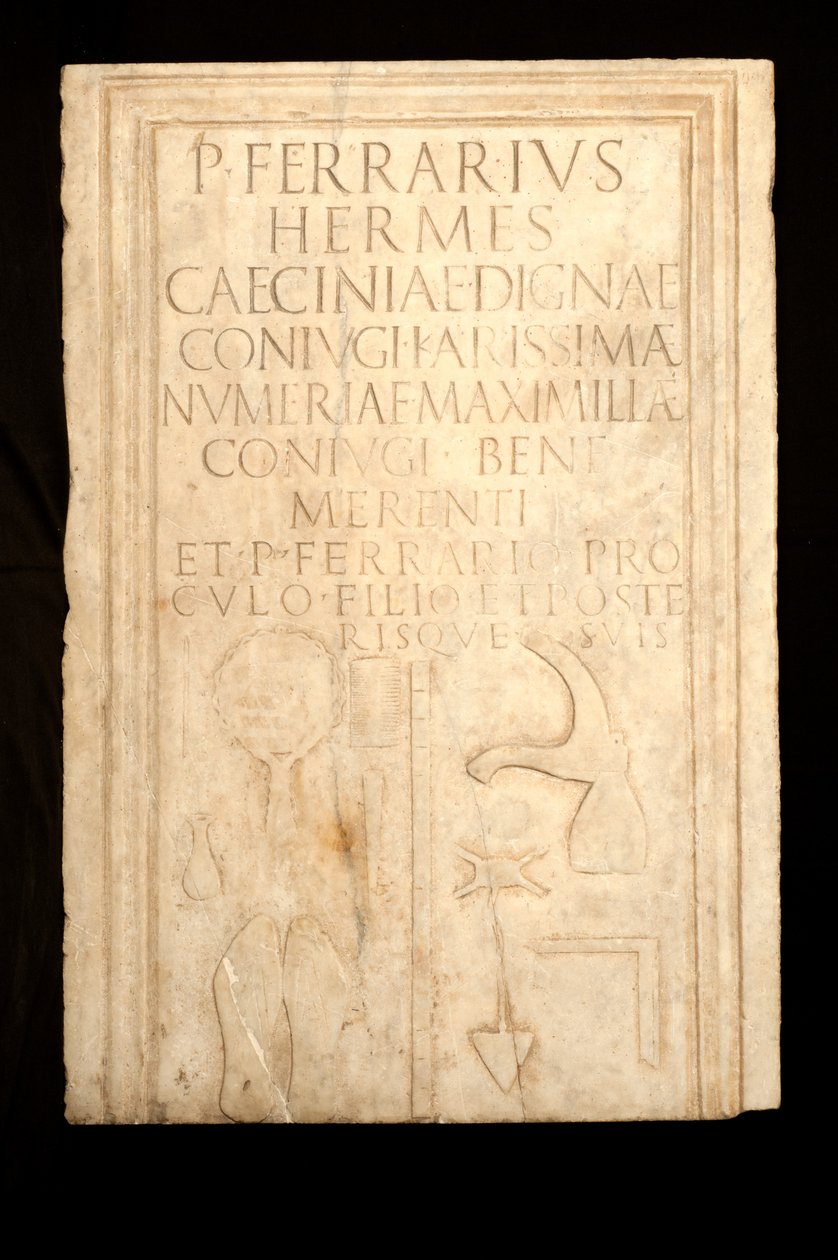 P·FERRARIVS
HERMES
CAECINIAE·DIGNAE
CONIVGI·KARISSIMÆ
NVMERIAE·MAXIMILLÆ
CONIVGI · BENE
MERENTI
ET·P·FERRARIO·PRO
CVLO·FILIO·ET·POSTE
RISQVE SVIS